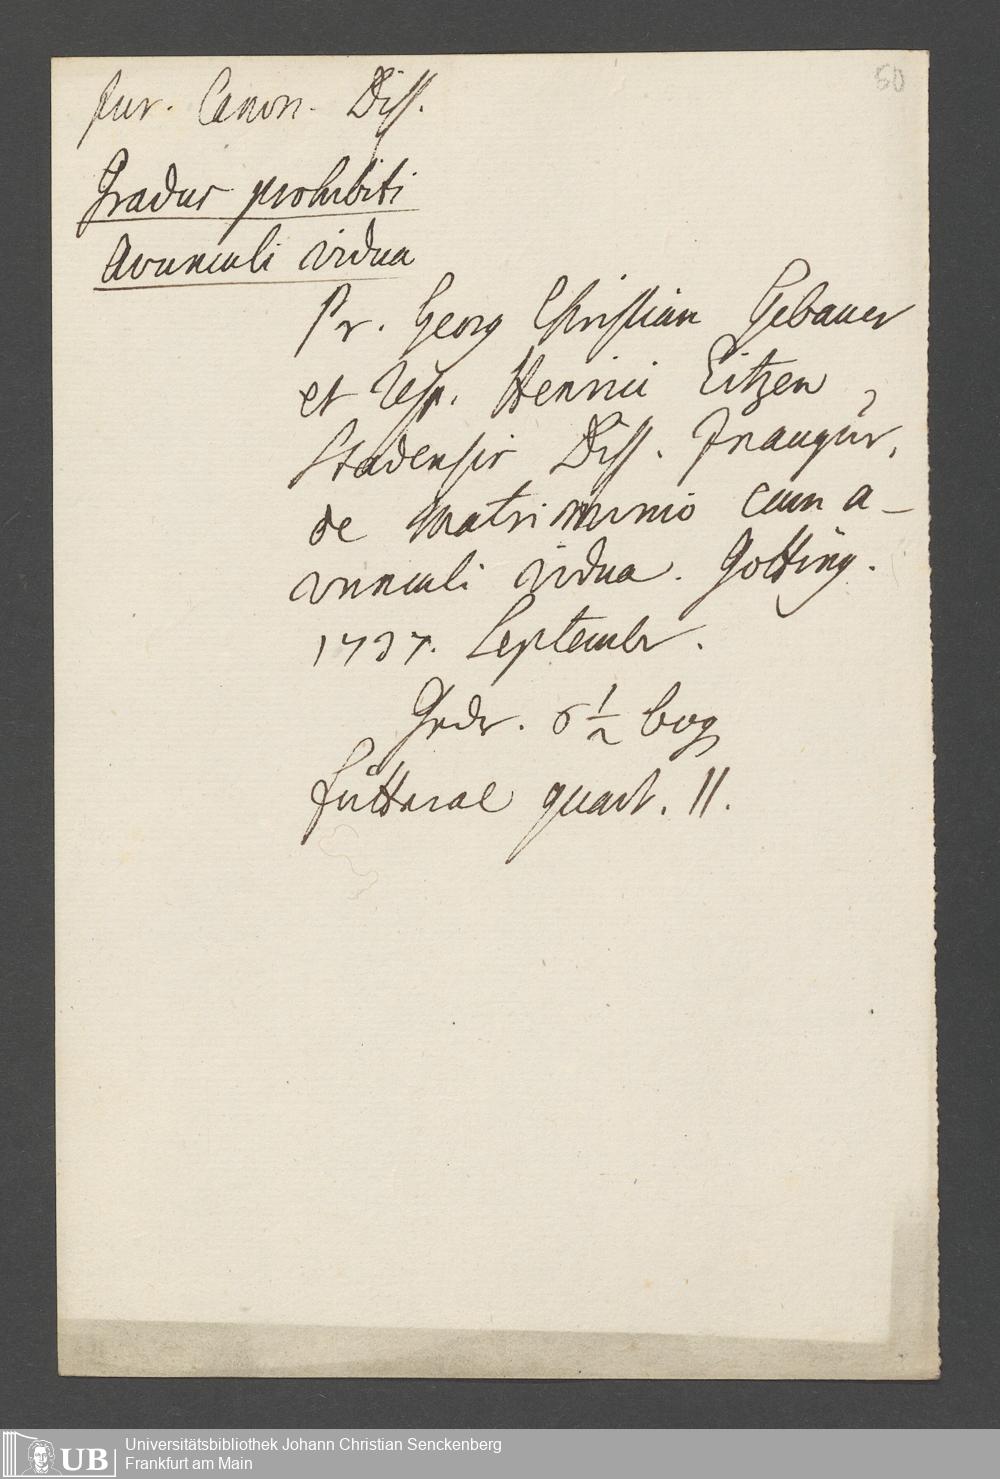 50
Jur. Canon. Diss.
Gradus prohibiti
Avunculi vidua
Pr. Georg Christian Gebauer
et Resp. Henrici Eitzen,
Stadensis Diss. Inaugur.
de Matrimonio cum a-
vunculi vidua. Gotting.
1737. Septembr.
6 1/2 bog
futteral quart. II.
UB
Universitätsbibliothek Johann Christian Senckenberg
Frankfurt am Main